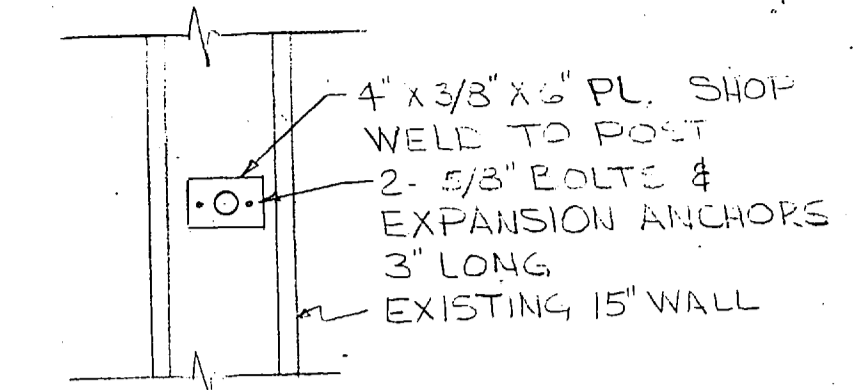 4" X 3/8" X 6" PL. SHOP
WELD TO POST
2- 5/8" BOLTS &
EXPANSION ANCHORS
3" LONG
EXISTING 15" WALL